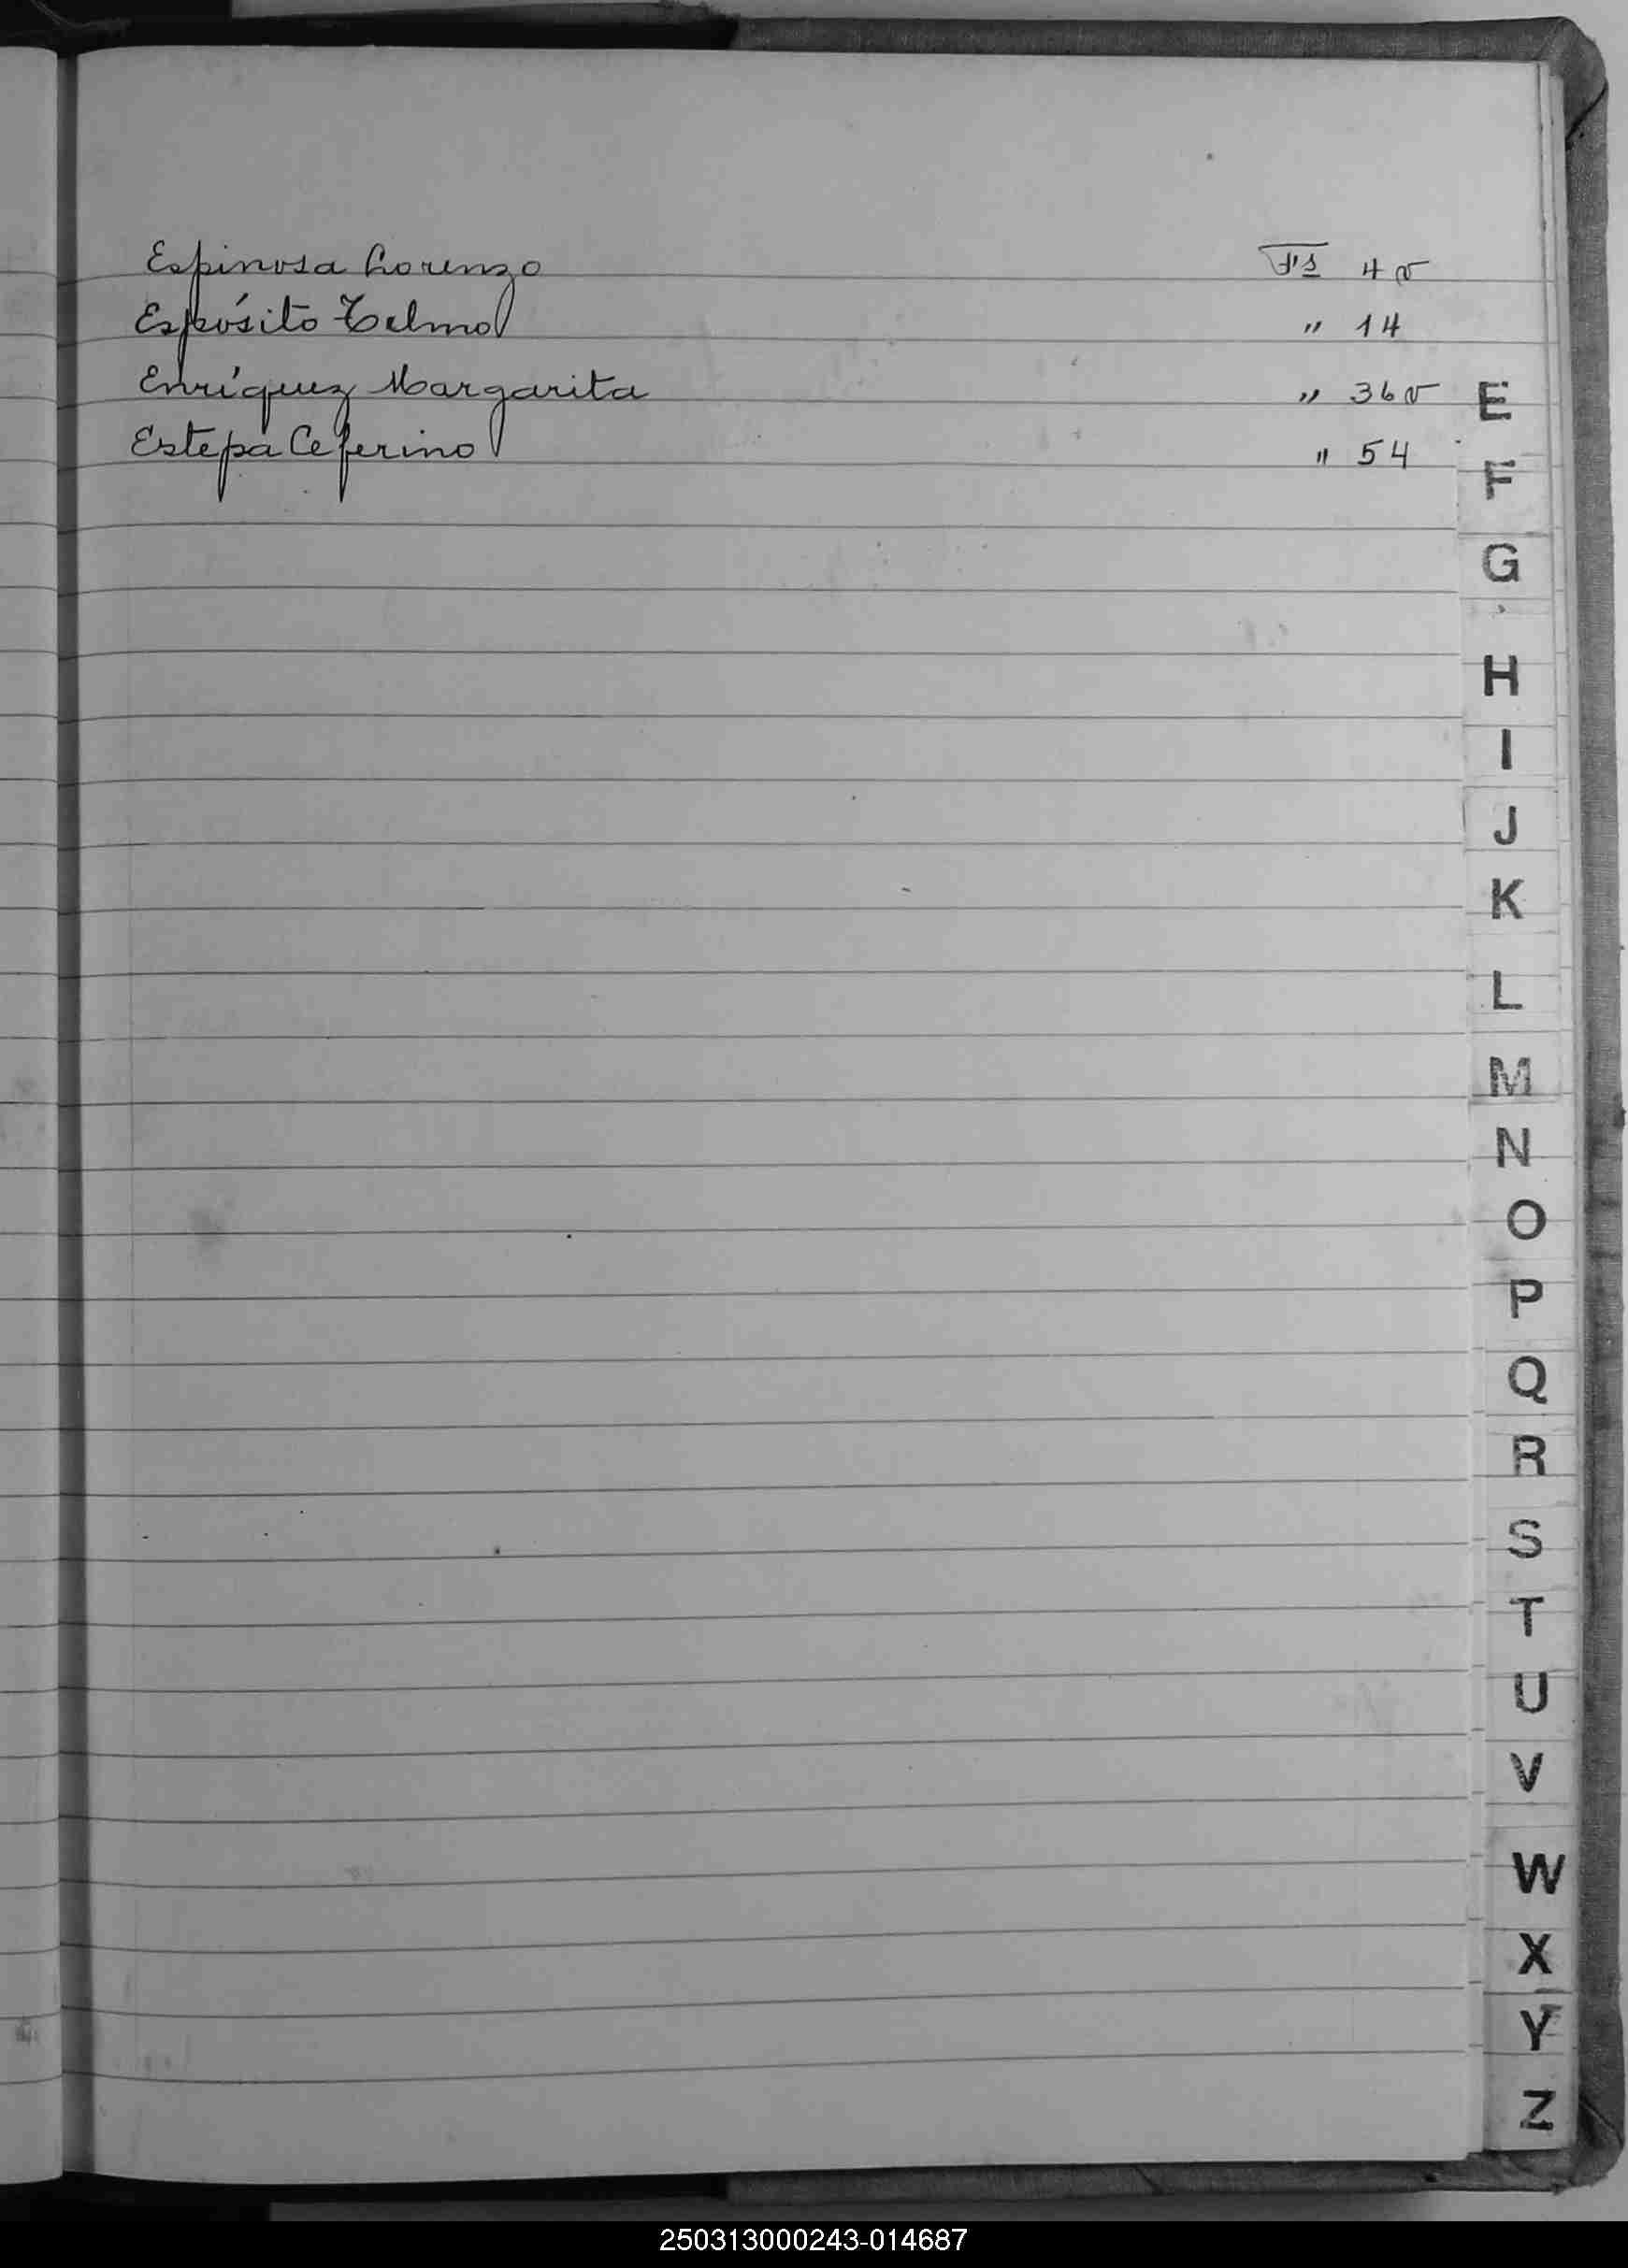 Espinosa Lorenzo Fs 4v
Espósito Telmo " 14
Enríquez Margarita " 36v
Estepa Ceferino " 54
E
F
G
H
I
J
K
L
M
N
O
P
Q
R
S
T
U
V
W
X
Y
Z
250313000243-014687